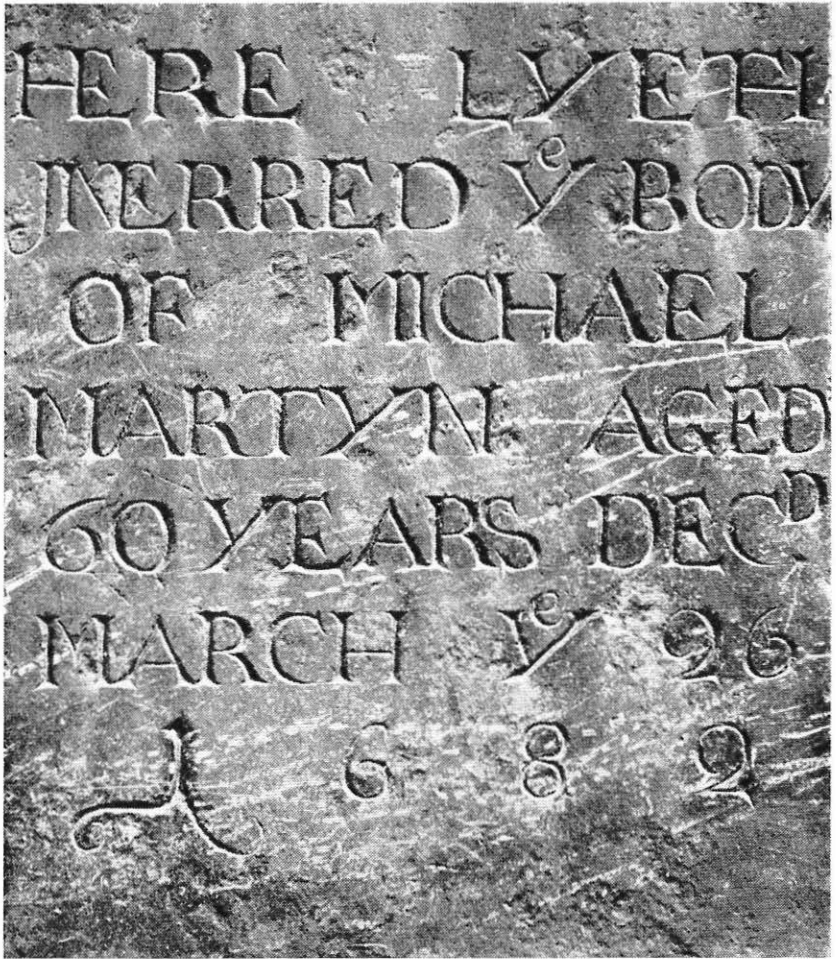 HERE LYETH
JNERRED Yᵉ BODY
OF MICHAEL
MARTYN AGED
60 YEARS DECᴰ
MARCH Yᵉ 26
1682